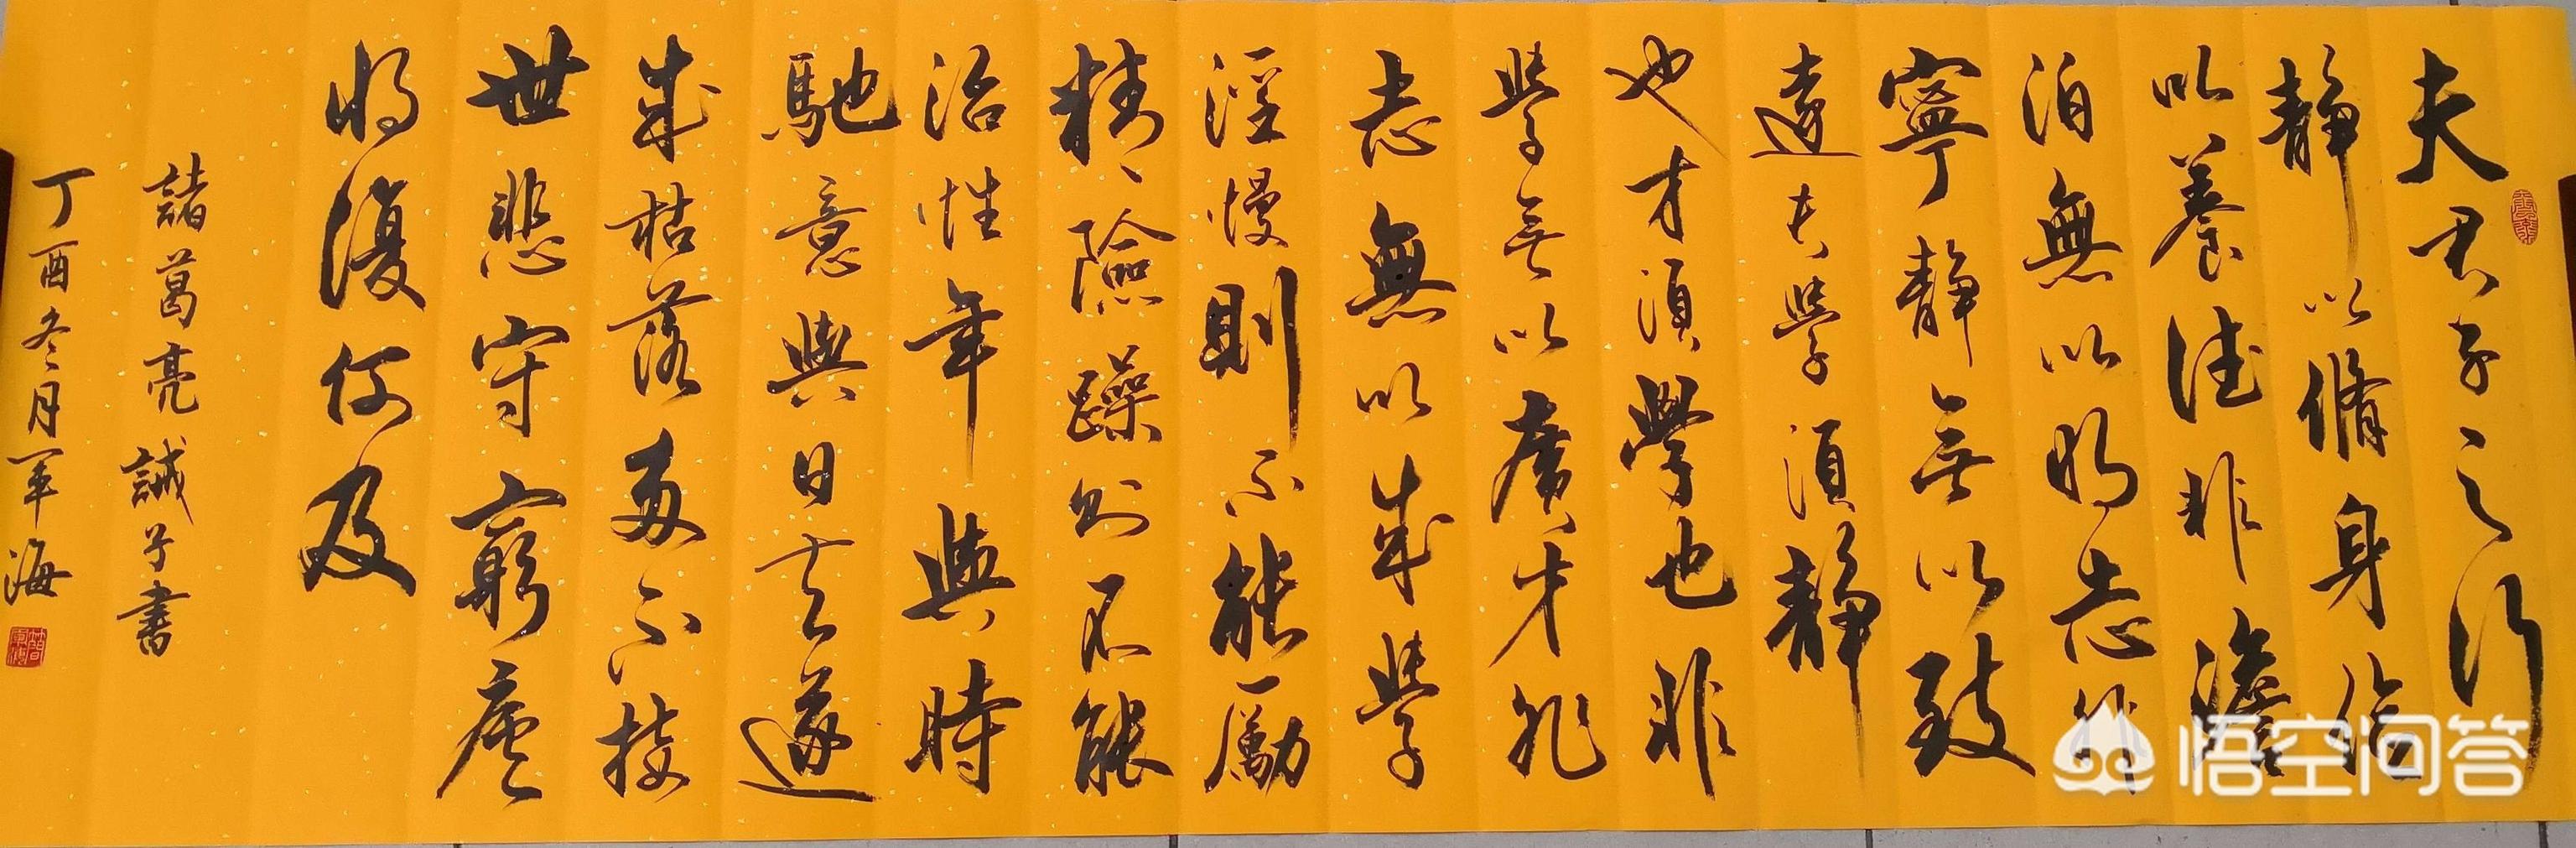 夫君子之行
靜以脩身儉
以養德非澹
泊無以明志非
寧靜無以致
遠夫學須靜
也才須學也非
學無以廣才非
志無以成學
淫慢則不能勵
精險躁則不能
治性年與時
馳意與日去遂
成枯落多不接
世悲守窮廬
將復何及
諸葛亮誡子書
丁酉冬月軍海
悟空问答